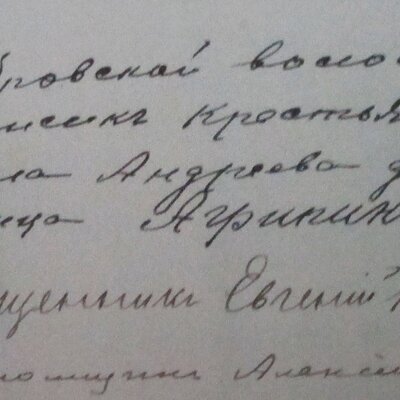 бровской воло
писикъ Крестья
ла Андреева д
ица Агрипин
щенникъ Евгений
ломщикъ Алексѣ